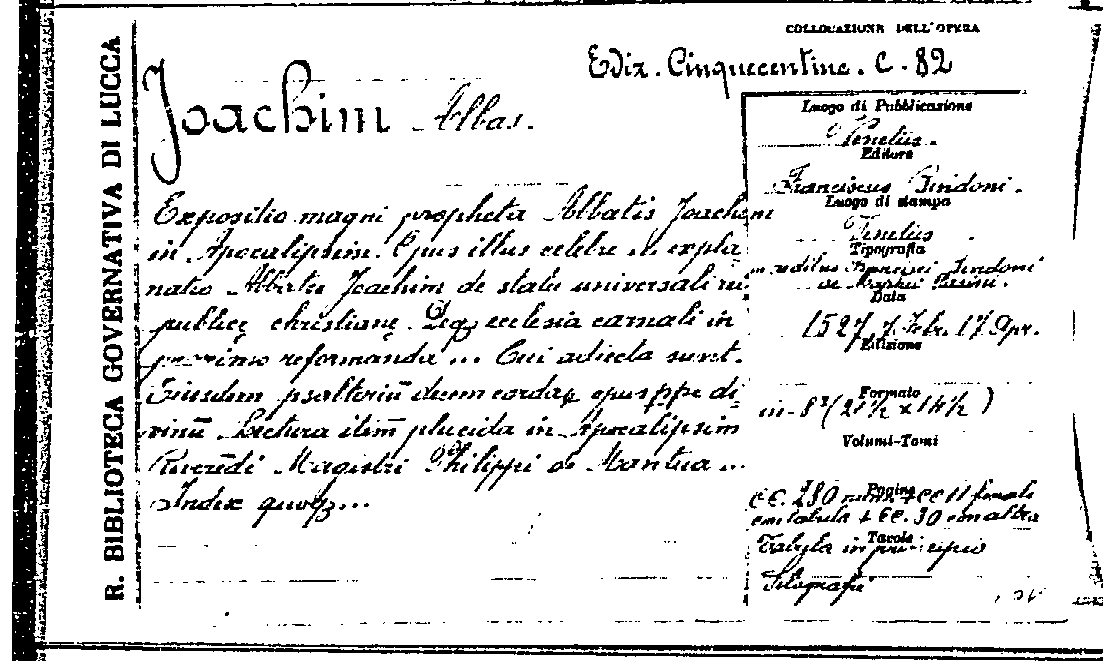 R. BIBLIOTECA GOVERNATIVA DI LUCCA
COLLOCAZIONE DELL'OPERA
Ediz. Cinquecentine. C. 82
Joachim Abbas.
Expositio magni propheta Abbatis Joachim
in Apocalipsim. Opus illud celebre ... expla
natio Abbatis Joachim de statu universali rei
publicę christianę. Deq ecclesia carnali in
proximo reformanda ... Cui adiecta sunt.
Eiusdem psalteriū decem cordaꝝ opus ppe di-
vinū Lectura itēm placida in Apocalipsim
Reverēdi Magistri Philippi de Mantua ...
Index quoqꝫ ...
Luogo di Pubblicazione
Venetiis.
Editore
Franciscus Bindoni.
Luogo di stampa
Venetiis
Tipografia
in aedibus Francisci Bindoni
ac Maphei Pasini.
Data
1527, 7 Febr. 17 Apr.
Edizione
Formato
in-8° (21½ x 14½)
Volumi-Tomi
Pagine
cc. 280 num. + cc 11 finali
con tabula + cc. 30 con altra
Tavole
Tabula in principio
Silografie